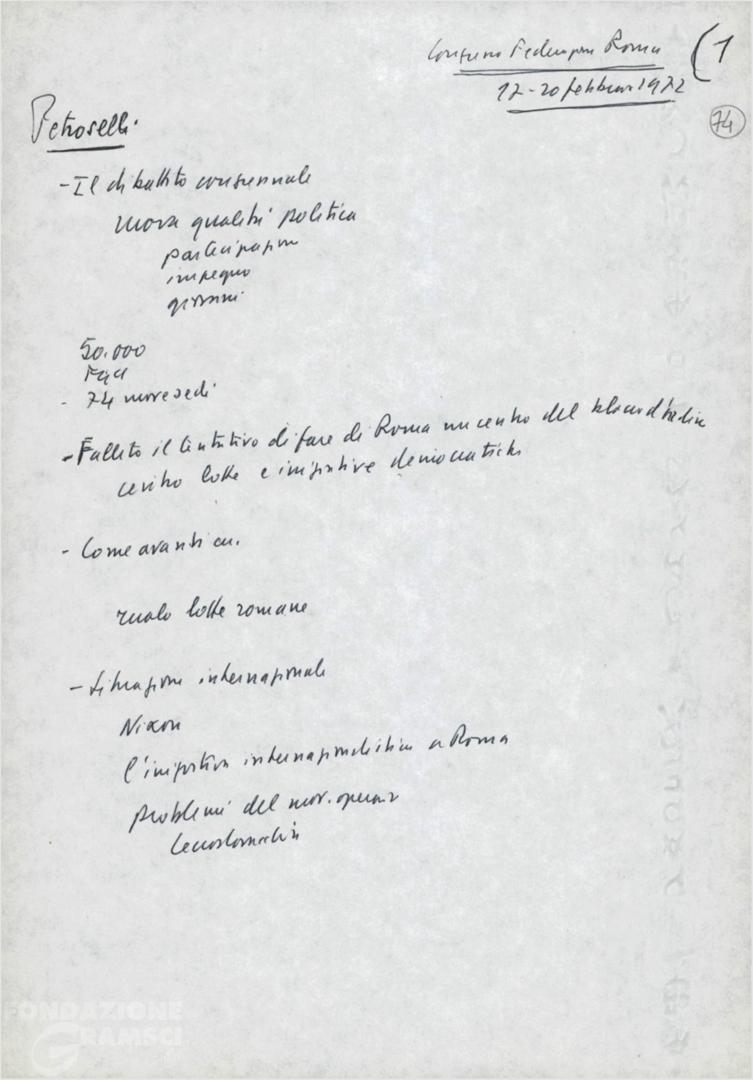 Congresso Federazione Roma (1
17-20 febbraio 1972
74
Petroselli.
- Il dibattito congressuale
nuova qualità politica
partecipazione
impegno
giovani
50.000
Fgci
- 74 nuove sedi
- Fallito il tentativo di fare di Roma un centro del
centro lotte e iniziative democratiche
- Come avanti
ruolo lotte romane
- Situazione internazionale
Nixon
l'iniziativa internazionalistica a Roma
problemi del mov. operaio
Cecoslovacchia
FONDAZIONE
GRAMSCI